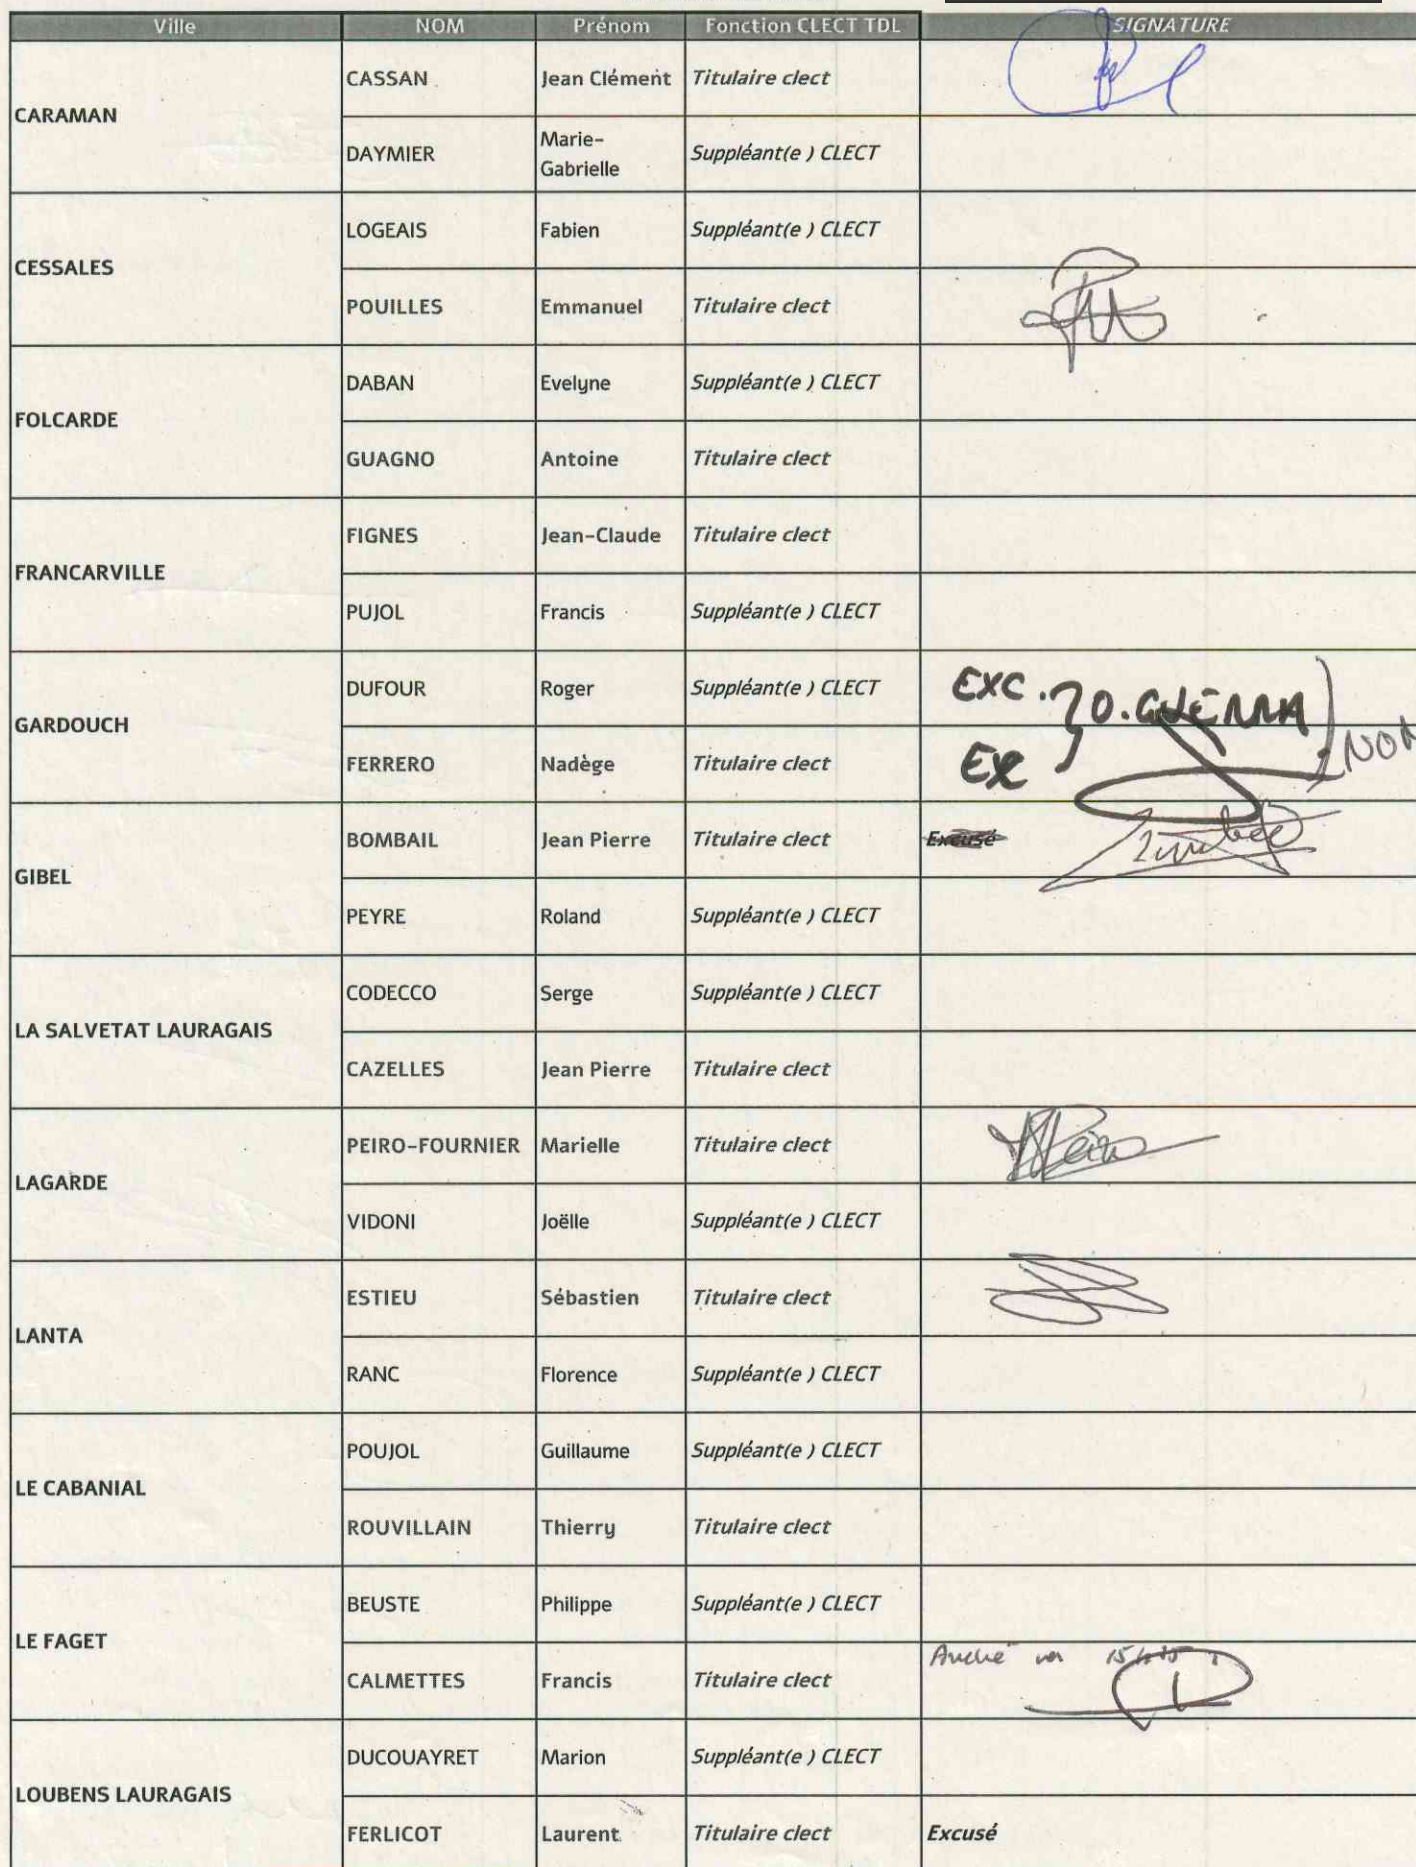 Ville NOM Prénom Fonction CLECT TDL SIGNATURE
CARAMAN
CASSAN Jean Clément Titulaire clect
DAYMIER Marie-
Gabrielle Suppléant(e ) CLECT
CESSALES
LOGEAIS Fabien Suppléant(e ) CLECT
POUILLES Emmanuel Titulaire clect
FOLCARDE
DABAN Evelyne Suppléant(e ) CLECT
GUAGNO Antoine Titulaire clect
FRANCARVILLE
FIGNES Jean-Claude Titulaire clect
PUJOL Francis Suppléant(e ) CLECT
GARDOUCH
DUFOUR Roger Suppléant(e ) CLECT EXC. O. GUERRA
FERRERO Nadège Titulaire clect EX NON
GIBEL
BOMBAIL Jean Pierre Titulaire clect Excusé
PEYRE Roland Suppléant(e ) CLECT
LA SALVETAT LAURAGAIS
CODECCO Serge Suppléant(e ) CLECT
CAZELLES Jean Pierre Titulaire clect
LAGARDE
PEIRO-FOURNIER Marielle Titulaire clect
VIDONI Joëlle Suppléant(e ) CLECT
LANTA
ESTIEU Sébastien Titulaire clect
RANC Florence Suppléant(e ) CLECT
LE CABANIAL
POUJOL Guillaume Suppléant(e ) CLECT
ROUVILLAIN Thierry Titulaire clect
LE FAGET
BEUSTE Philippe Suppléant(e ) CLECT
CALMETTES Francis Titulaire clect
LOUBENS LAURAGAIS
DUCOUAYRET Marion Suppléant(e ) CLECT
FERLICOT Laurent Titulaire clect Excusé